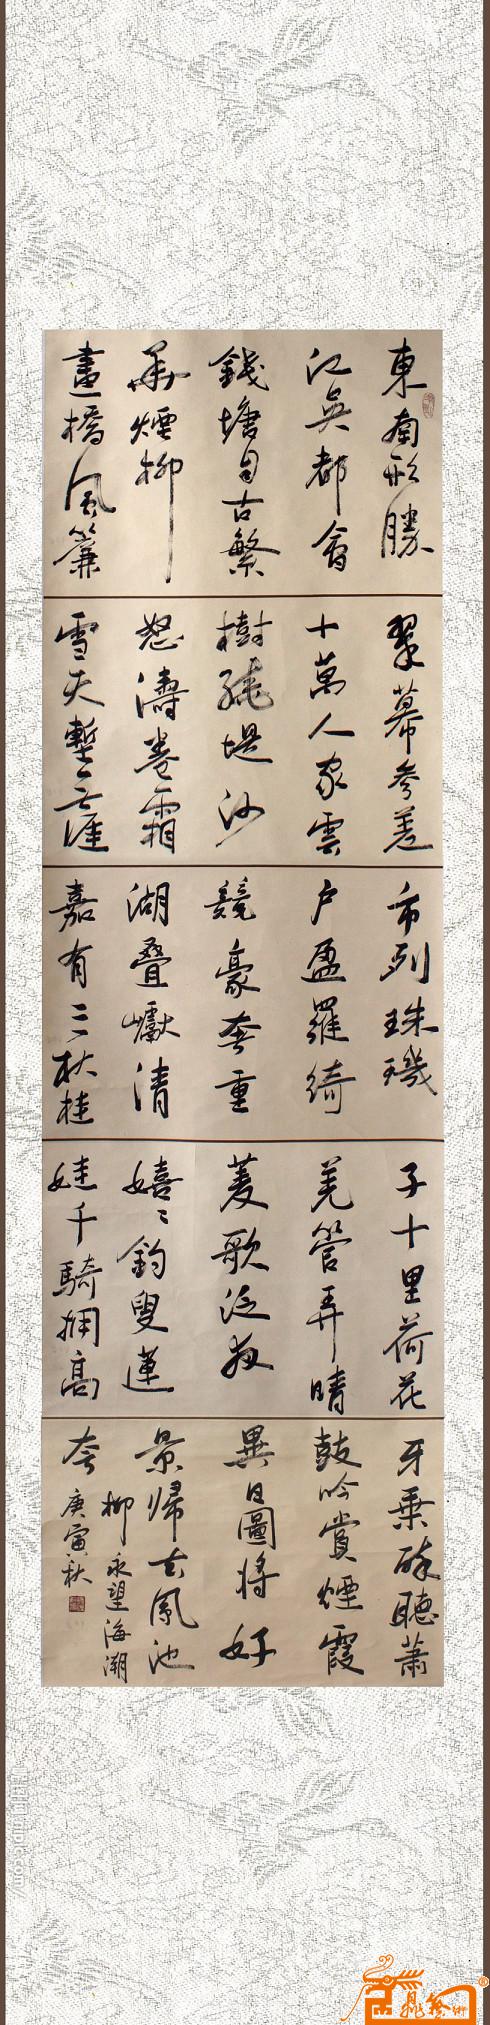 東南形勝
江吳都會
錢塘自古繁
華煙柳
畫橋風簾
翠幕參差
十萬人家雲
樹繞堤沙
怒濤卷霜
雪天塹无涯
市列珠璣
户盈羅綺
競豪奢重
湖疊巘清
嘉有三秋桂
子十里荷花
羌管弄晴
菱歌泛夜
嬉〻釣叟蓮
娃千騎擁高
牙乘醉聽蕭
鼓吟賞煙霞
異日圖將好
景歸去鳳池
夸
柳永望海潮
庚寅秋